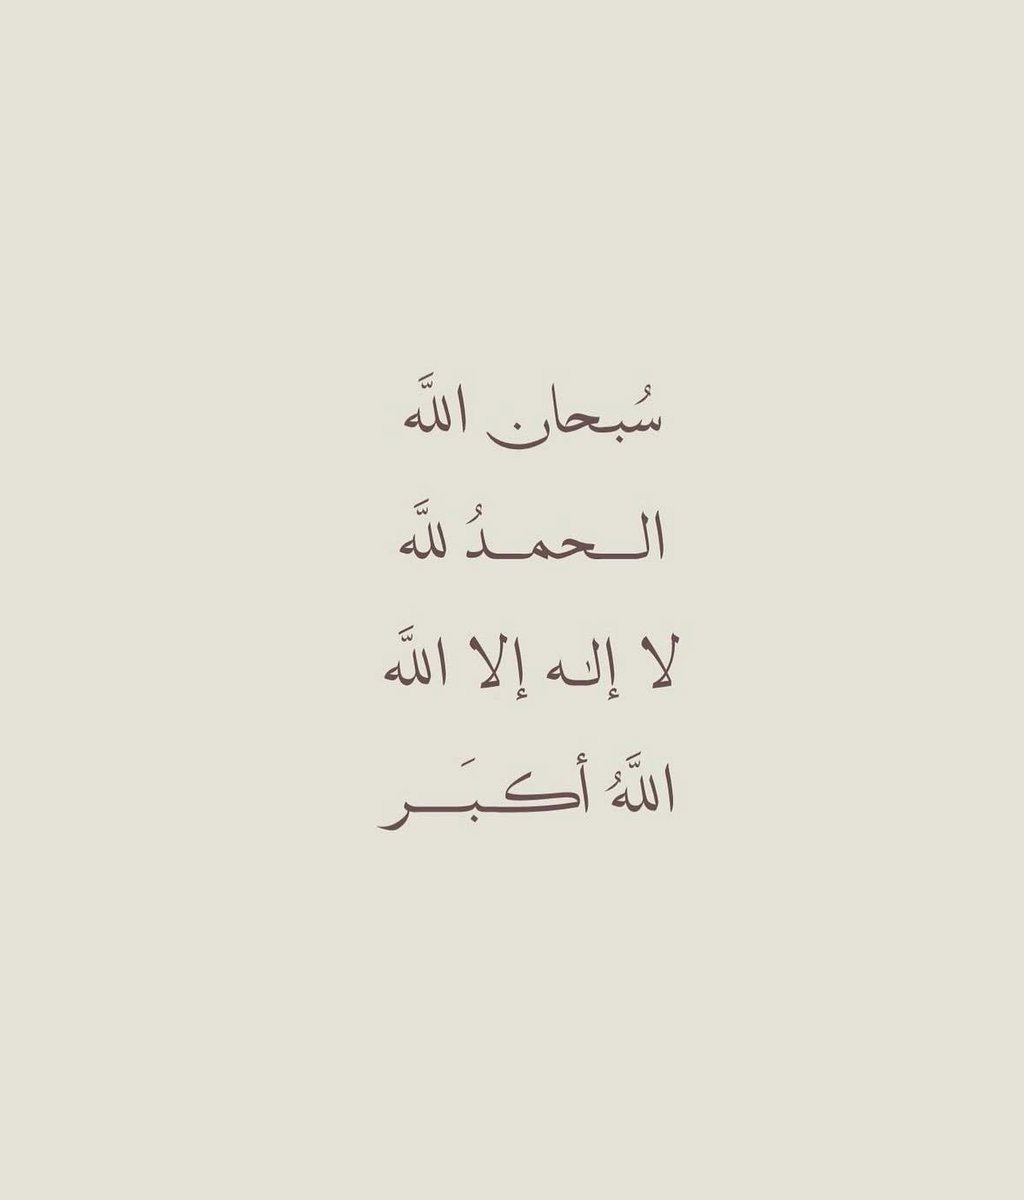 سُبحان اللَّه
الـحمـدُ للَّه
لا إلـٰه إلا اللَّه
اللَّهُ أكبَـر